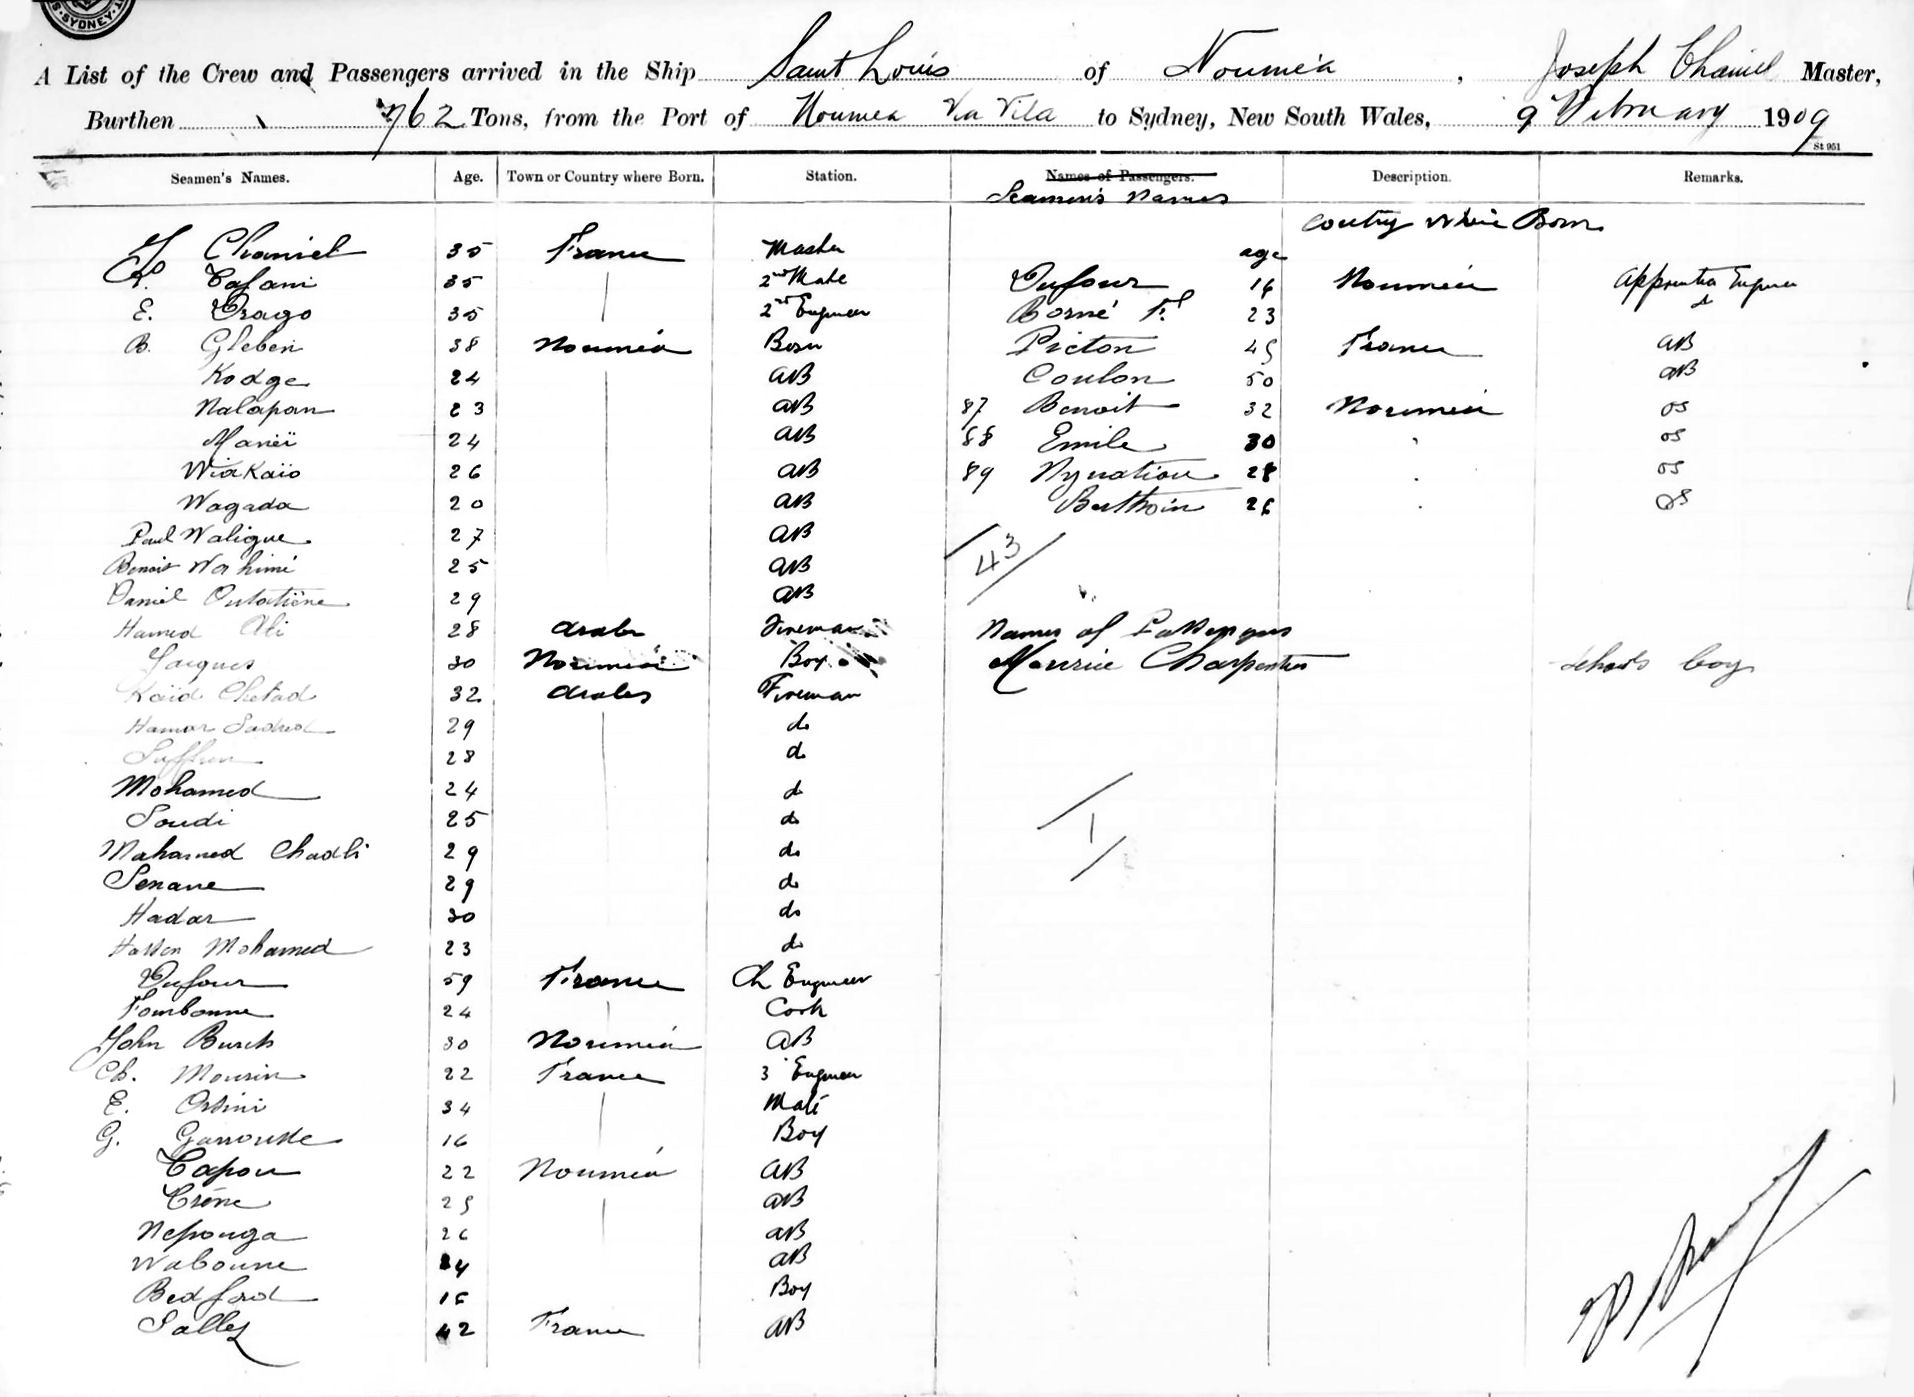 SYDNEY
A List of the Crew and Passengers arrived in the Ship Saint Louis of Nouméa, Joseph Chaniel Master,
Burthen 762 Tons, from the Port of Noumea Via Vila to Sydney, New South Wales, 9 February 1909
St 951
Seamen's Names. Age. Town or Country where Born. Station. Names of Passengers. Description. Remarks.
Seamen's Names
Country Where Born
J. Chaniel 35 France Master age
35 2nd Mate Dufour 16 Nouméa Apprentice Engineer
E. Drago 35 2nd Engineer Borné 23 d
B. Gleben 38 Nouméa Bosn Picton 45 France AB
Kodge 24 AB Coulon 50 AB
Nalapan 23 AB 87 Benoit 32 Nouméa OS
Maneï 24 AB 88 Emile 30 OS
Wiakaïo 26 AB 89 28 OS
Wagada 20 AB Berthoin 26 OS
Paul Waligue 27 AB
Benoit Wahimé 25 AB 43
Daniel Outatiène 29 AB
Hamed Ali 28 Arabe Fireman Names of Passengers
Jacques 30 Nouméa Boy Maurice Charpentier School boy
Kaïd Chetad 32 Arabes Fireman
Hamor 29 do
28 d
Mohamed 24 d
Soudi 25 do 1
Mahamed Chadli 29 do
Senane 29 do
Hadar 30 do
Hassen Mohamed 23 do
Dufour 59 France Ch Engineer
Fourbonne 24 Cook
John Burch 30 Nouméa AB
Ch. Mourin 22 France 3 Engineer
E. Orsini 34 Mate
G. Garrouste 16 Boy
Capou 22 Nouméa AB
Crène 25 AB
Neponga 26 AB
Waboune 24 AB
Bedford 16 Boy
Salles 42 France AB